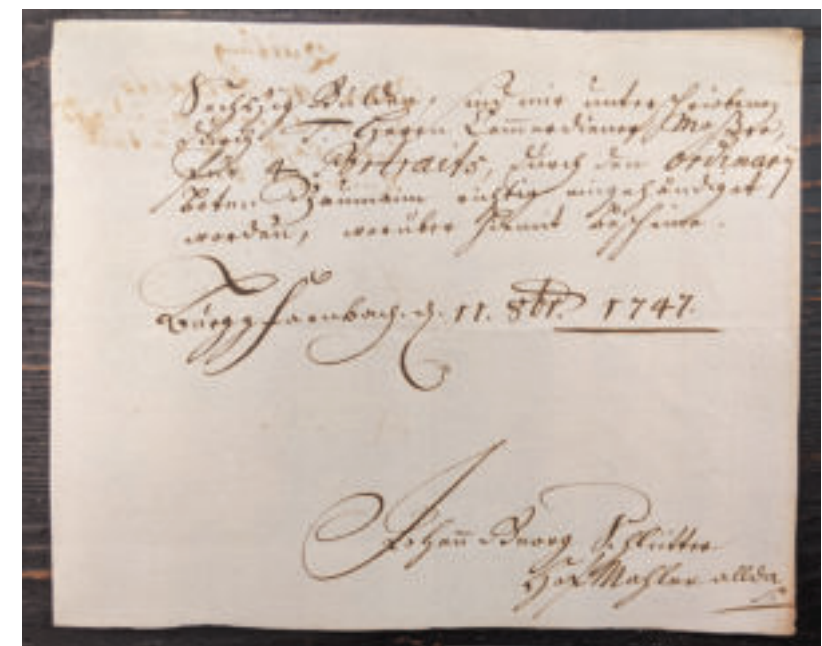 Sechszig Gulden, sind mir unterschriebenen
durch T. Herrn Cammerdiener
für 4 Portraits, durch den ordinary
Boten Baumann richtig eingehändiget
worden, worüber hiemit bescheine.
Burggfarnbach. d. 11. 8br. 1747.
Johann Georg Schlütter
Hof Mahler allda